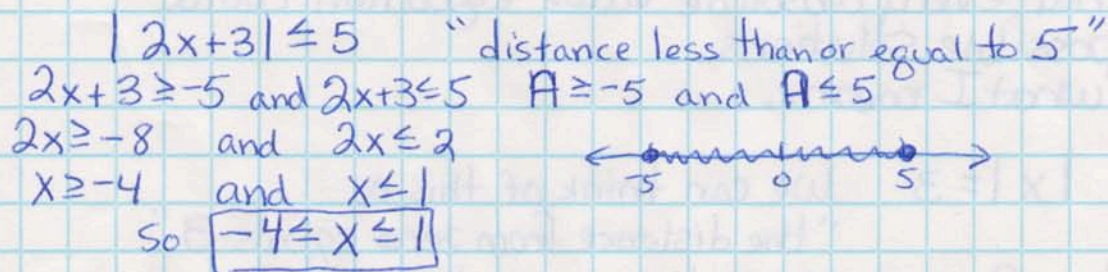 |2x+3| ≤ 5 "distance less than or equal to 5"
2x+3≥-5 and 2x+3≤5 A≥-5 and A≤5
2x≥-8 and 2x≤2
-5 0 5
x≥-4 and x≤1
So -4≤x≤1